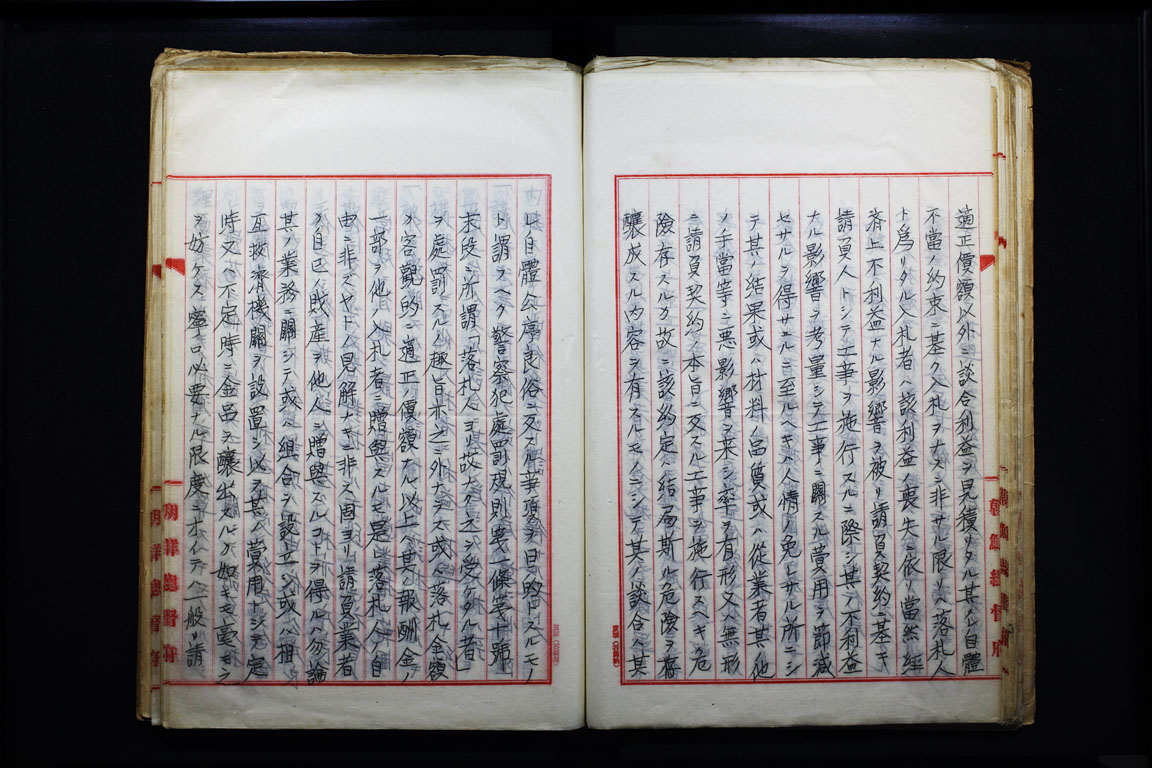 適正價額以外ニ談合利益ヲ見積リタル其レ自體
不當ノ約束ニ基ク入札ヲナスニ非サル限リハ落札人
ト爲リタル入札者ハ該利益ノ喪失ニ依リ當然經
濟上不利益ナル影響ヲ被リ請負契約ニ基キ
請負人トシテ工事ヲ施行スルニ際シ其ノ不利益
ナル影響ヲ考量シテ工事ニ關スル費用ヲ節減
セサルヲ得サルニ至ルヘキハ人情ノ免レサル所ニシ
テ其ノ結果或ハ材料ノ品質或ハ從業者其ノ他
ノ手當等ニ惡影響ヲ來シ率ヲ有形又ハ無形
ニ請負契約ノ本旨ニ反スル工事ヲ施行スヘキ危
險存スルカ故ニ該約定ハ結局斯ル危險ヲ
釀成スル内容ヲ有スルモノニシテ其ノ談合ハ其
レ自體公序良俗ニ反スル事項ヲ目的トスルモノ
ト謂フヘク警察犯處罰規則第一條第十號
末段ニ所謂「落札人ヨリ故ナク之ヲ受ケタル者」
ヲ處罰スルノ趣旨亦之ニ外ナラス或ハ落札金額
カ客觀的ニ適正ノ價額ナル以上ハ其ノ報酬金ノ
一部ヲ他ノ入札者ニ贈與スルモ是レ落札人ノ自
由ニ非スヤトノ見解ナキニ非ス固ヨリ請負業者
カ自己ノ財産ヲ他人ニ贈與スルコトヲ得ルハ勿論
其ノ業務ニ關シテ或ハ組合ヲ設立シ或ハ相
互救濟機關ヲ設置シ以テ其ノ費用トシテ定
時又ハ不定時ニ金員ヲ醵出スルカ如キモ毫モ之
ヲ妨ケス蓋シ必要ナル限度ニ於イテハ一般ノ請
朝鮮總督府
朝鮮總督府